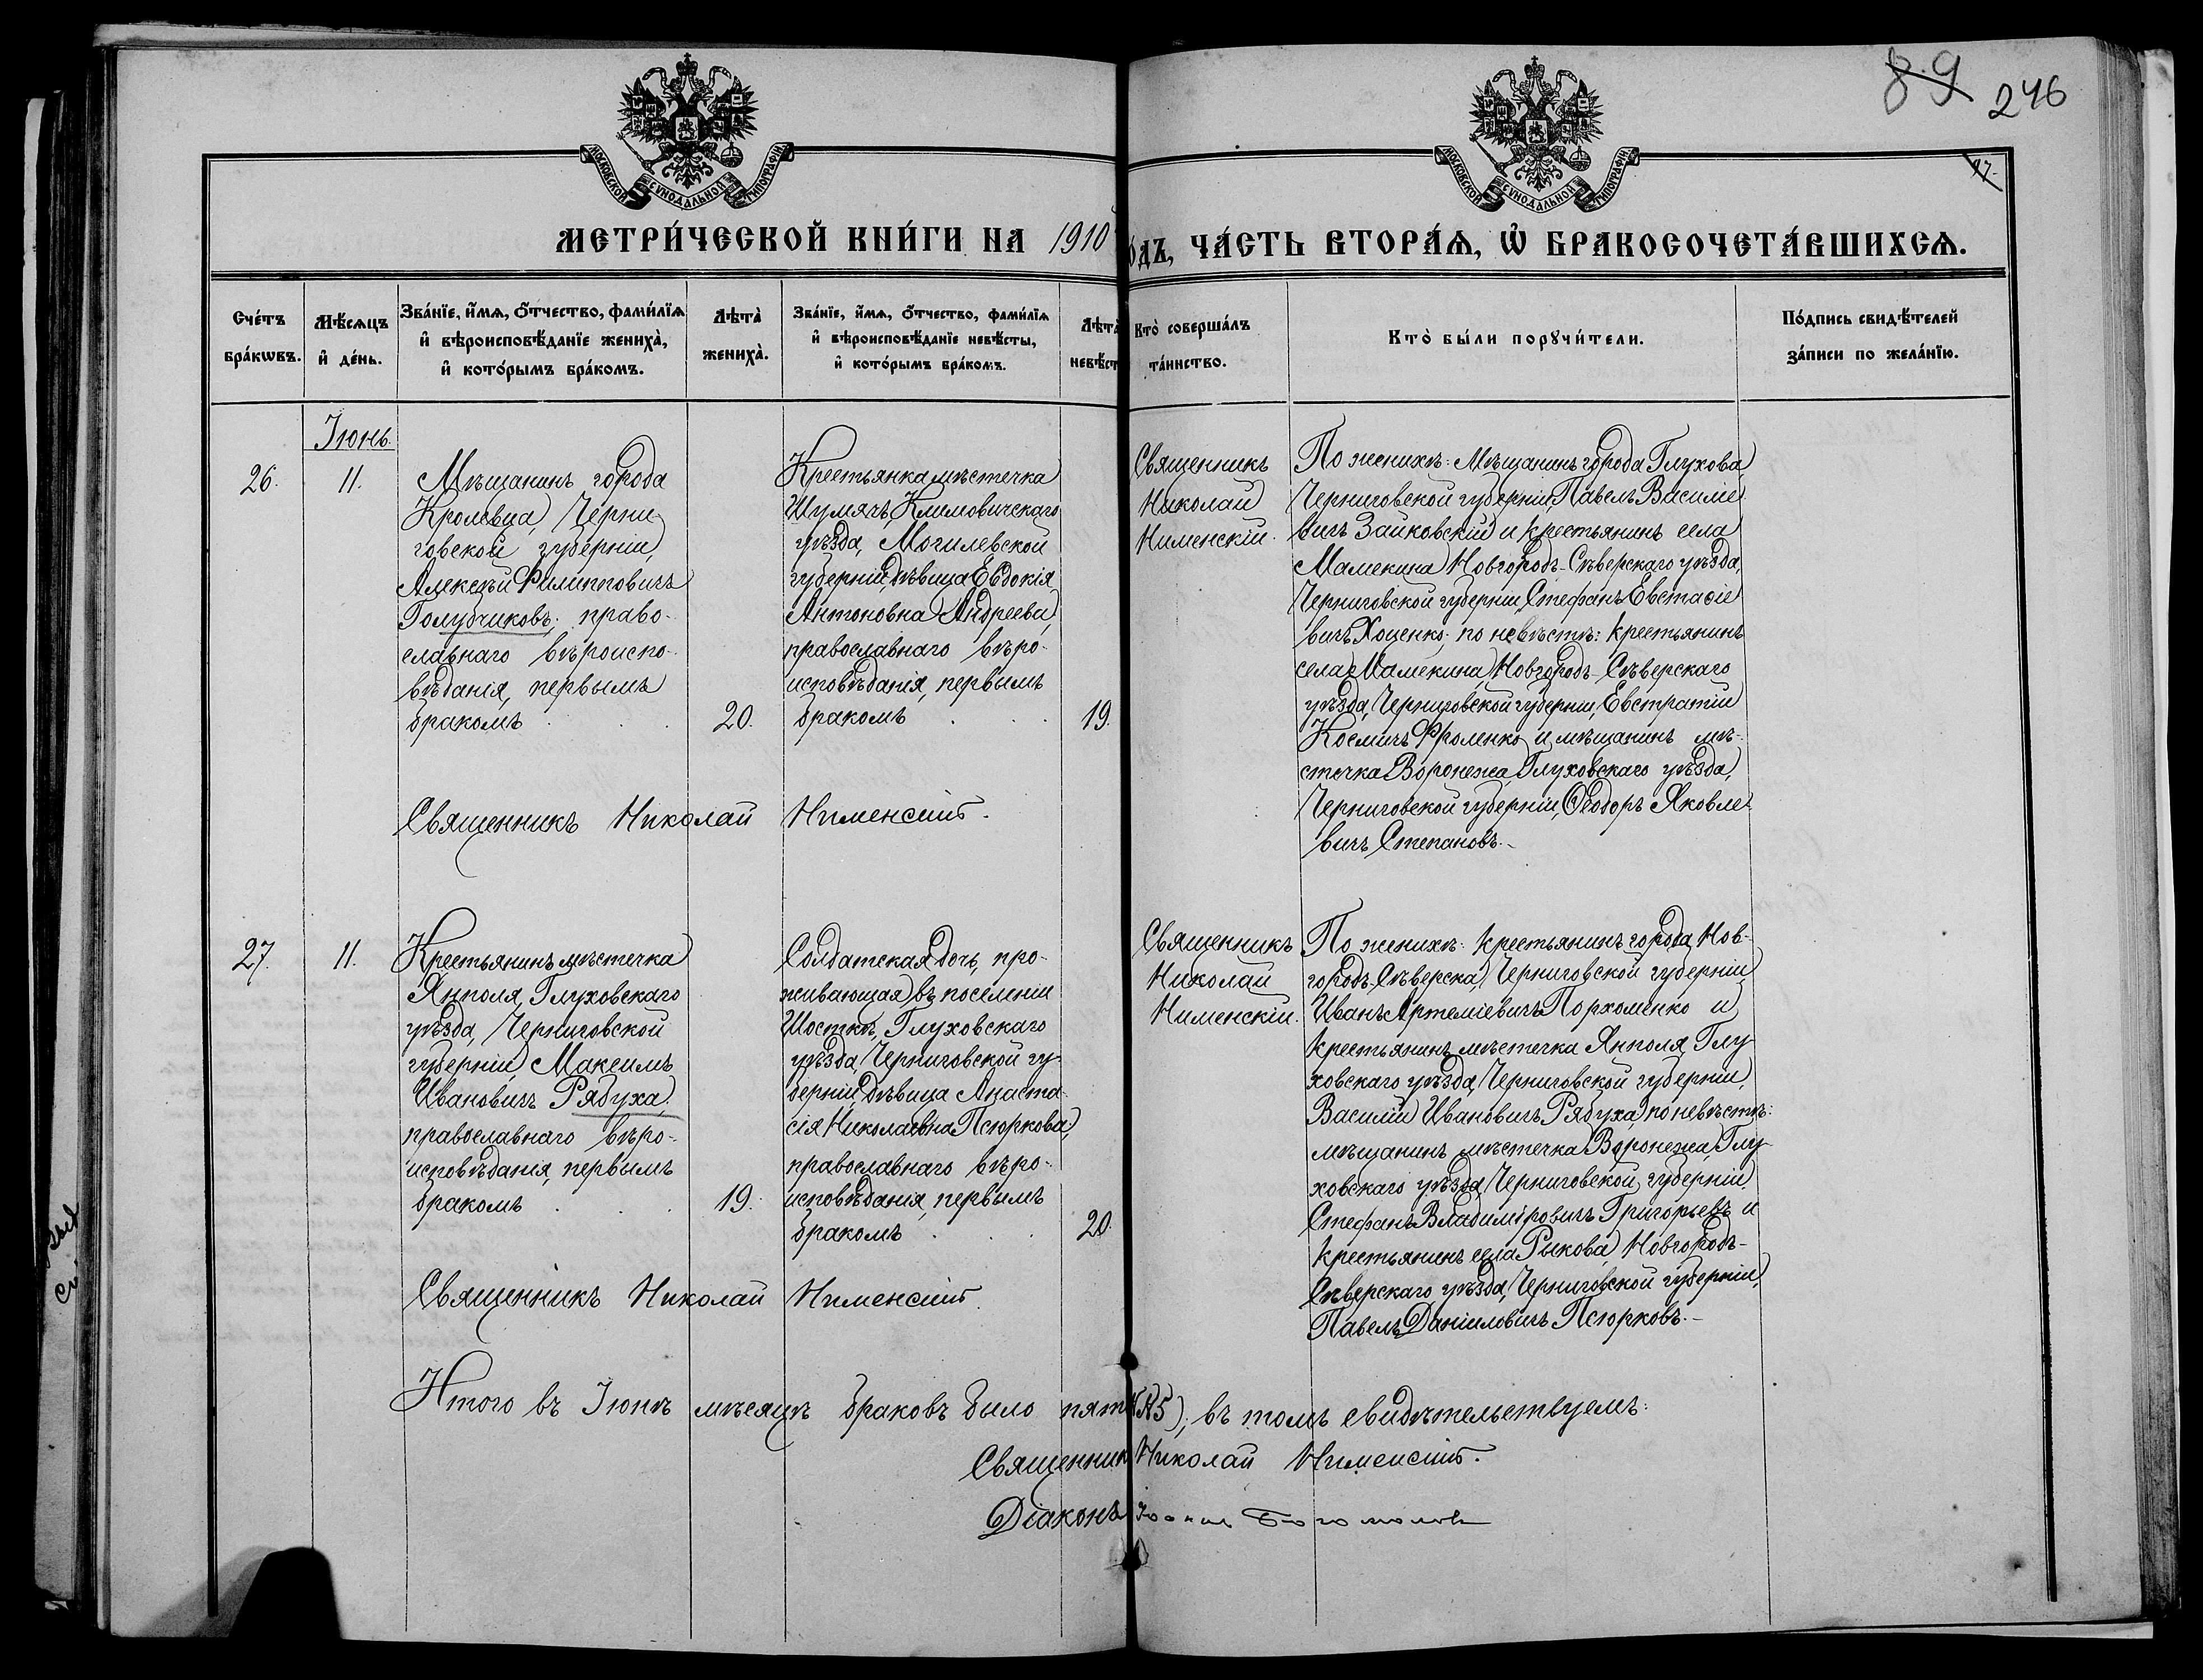 89 246
27.
МОСКОВСКОЙ СѴНОДАЛЬНОЙ ТИПОГРАФІИ
МОСКОВСКОЙ СѴНОДАЛЬНОЙ ТИПОГРАФІИ
МЕТРИ́ЧЕСКОЙ КНИ́ГИ НА 1910 о́дъ, ЧА́СТЬ ВТОРА́Ѧ, Ѽ БРАКОСОЧЕТА́ВШИХСѦ.
Сче́тъ
бра́кѡвъ.
Мѣ́сѧцъ
и҆ де́нь.
Зва́нїе, и҆́мѧ, ѻ҆́тчество, фами́лїѧ
и҆ вѣроисповѣ́данїе жениха̀,
и҆ кото́рымъ бра́комъ.
Лѣта̀
жениха̀.
Зва́нїе, и҆́мѧ, ѻ҆́тчество, фами́лїѧ
и҆ вѣроисповѣ́данїе невѣ́сты,
и҆ кото́рымъ бра́комъ.
Лѣта̀
невѣ́ст
Кто̀ соверша́лъ
та́инство.
Кто̀ бы́ли порꙋчи́тели.
По́дпись свидѣ́телей
за́писи по жела́нїю.
Іюнь.
26.
11.
Мѣщанинъ города
Кролевца, Черни-
говской губерніи,
Алексѣй Филипповичъ
Голубчиковъ, право-
славнаго вѣроиспо-
вѣданія, первымъ
бракомъ . .
20.
Крестьянка мѣстечка
Шумячъ, Климовичскаго
уѣзда, Могилевской
губерніи, дѣвица Евдокія
Антоновна Андреева,
православнаго вѣро-
исповѣданія, первымъ
бракомъ . .
19.
Священникъ
Николай
Нименскій.
По женихѣ: Мѣщанинъ города Глухова,
Черниговской губерніи, Павелъ Василіе-
вичъ Зайковскій и крестьянинъ села
Мамекина, Новгородъ-Сѣверскаго уѣзда,
Черниговской губерніи, Стефанъ Евстафіе-
вичъ Хоценко; по невѣстѣ: крестьянинъ
села Мамекина, Новгородъ-Сѣверскаго
уѣзда, Черниговской губерніи, Евстратій
Космичъ Фроленко и мѣщанинъ мѣ-
стечка Воронежа, Глуховскаго уѣзда,
Черниговской губерніи, Ѳеодоръ Яковле-
вичъ Степановъ.-
Священникъ Николай Нименскій.
27.
11.
Крестьянинъ мѣстечка
Янполя, Глуховскаго
уѣзда, Черниговской
губерніи, Максимъ
Ивановичъ Рябуха,
православнаго вѣро-
исповѣданія, первымъ
бракомъ . .
19.
Солдатская дочь, про-
живающая въ поселеніи
Шосткѣ, Глуховскаго
уѣзда, Черниговской гу-
берніи, дѣвица Анаста-
сія Николаевна Псюркова,
православнаго вѣро-
исповѣданія, первымъ
бракомъ . .
20.
Священникъ
Николай
Нименскій.
По женихѣ: крестьянинъ города Нов-
городъ-Сѣверска, Черниговской губерніи,
Иванъ Артеміевичъ Пархоменко и
крестьянинъ мѣстечка Янполя, Глу-
ховскаго уѣзда, Черниговской губерніи,
Василій Ивановичъ Рябуха; по невѣстѣ:
мѣщанинъ мѣстечка Воронежа, Глу-
ховскаго уѣзда, Черниговской губерніи,
Стефанъ Владиміровичъ Григорьевъ и
крестьянинъ села Рыкова, Новгородъ-
Сѣверскаго уѣзда, Черниговской губерніи,
Павелъ Даніиловичъ Псюрковъ.-
Священникъ Николай Нименскій.
Итого въ Іюнѣ мѣсяцѣ браковъ было пять (5); въ томъ свидѣтельствуемъ:
Священник Николай Нименскій.
Діаконъ Іоаннъ Богомоловъ